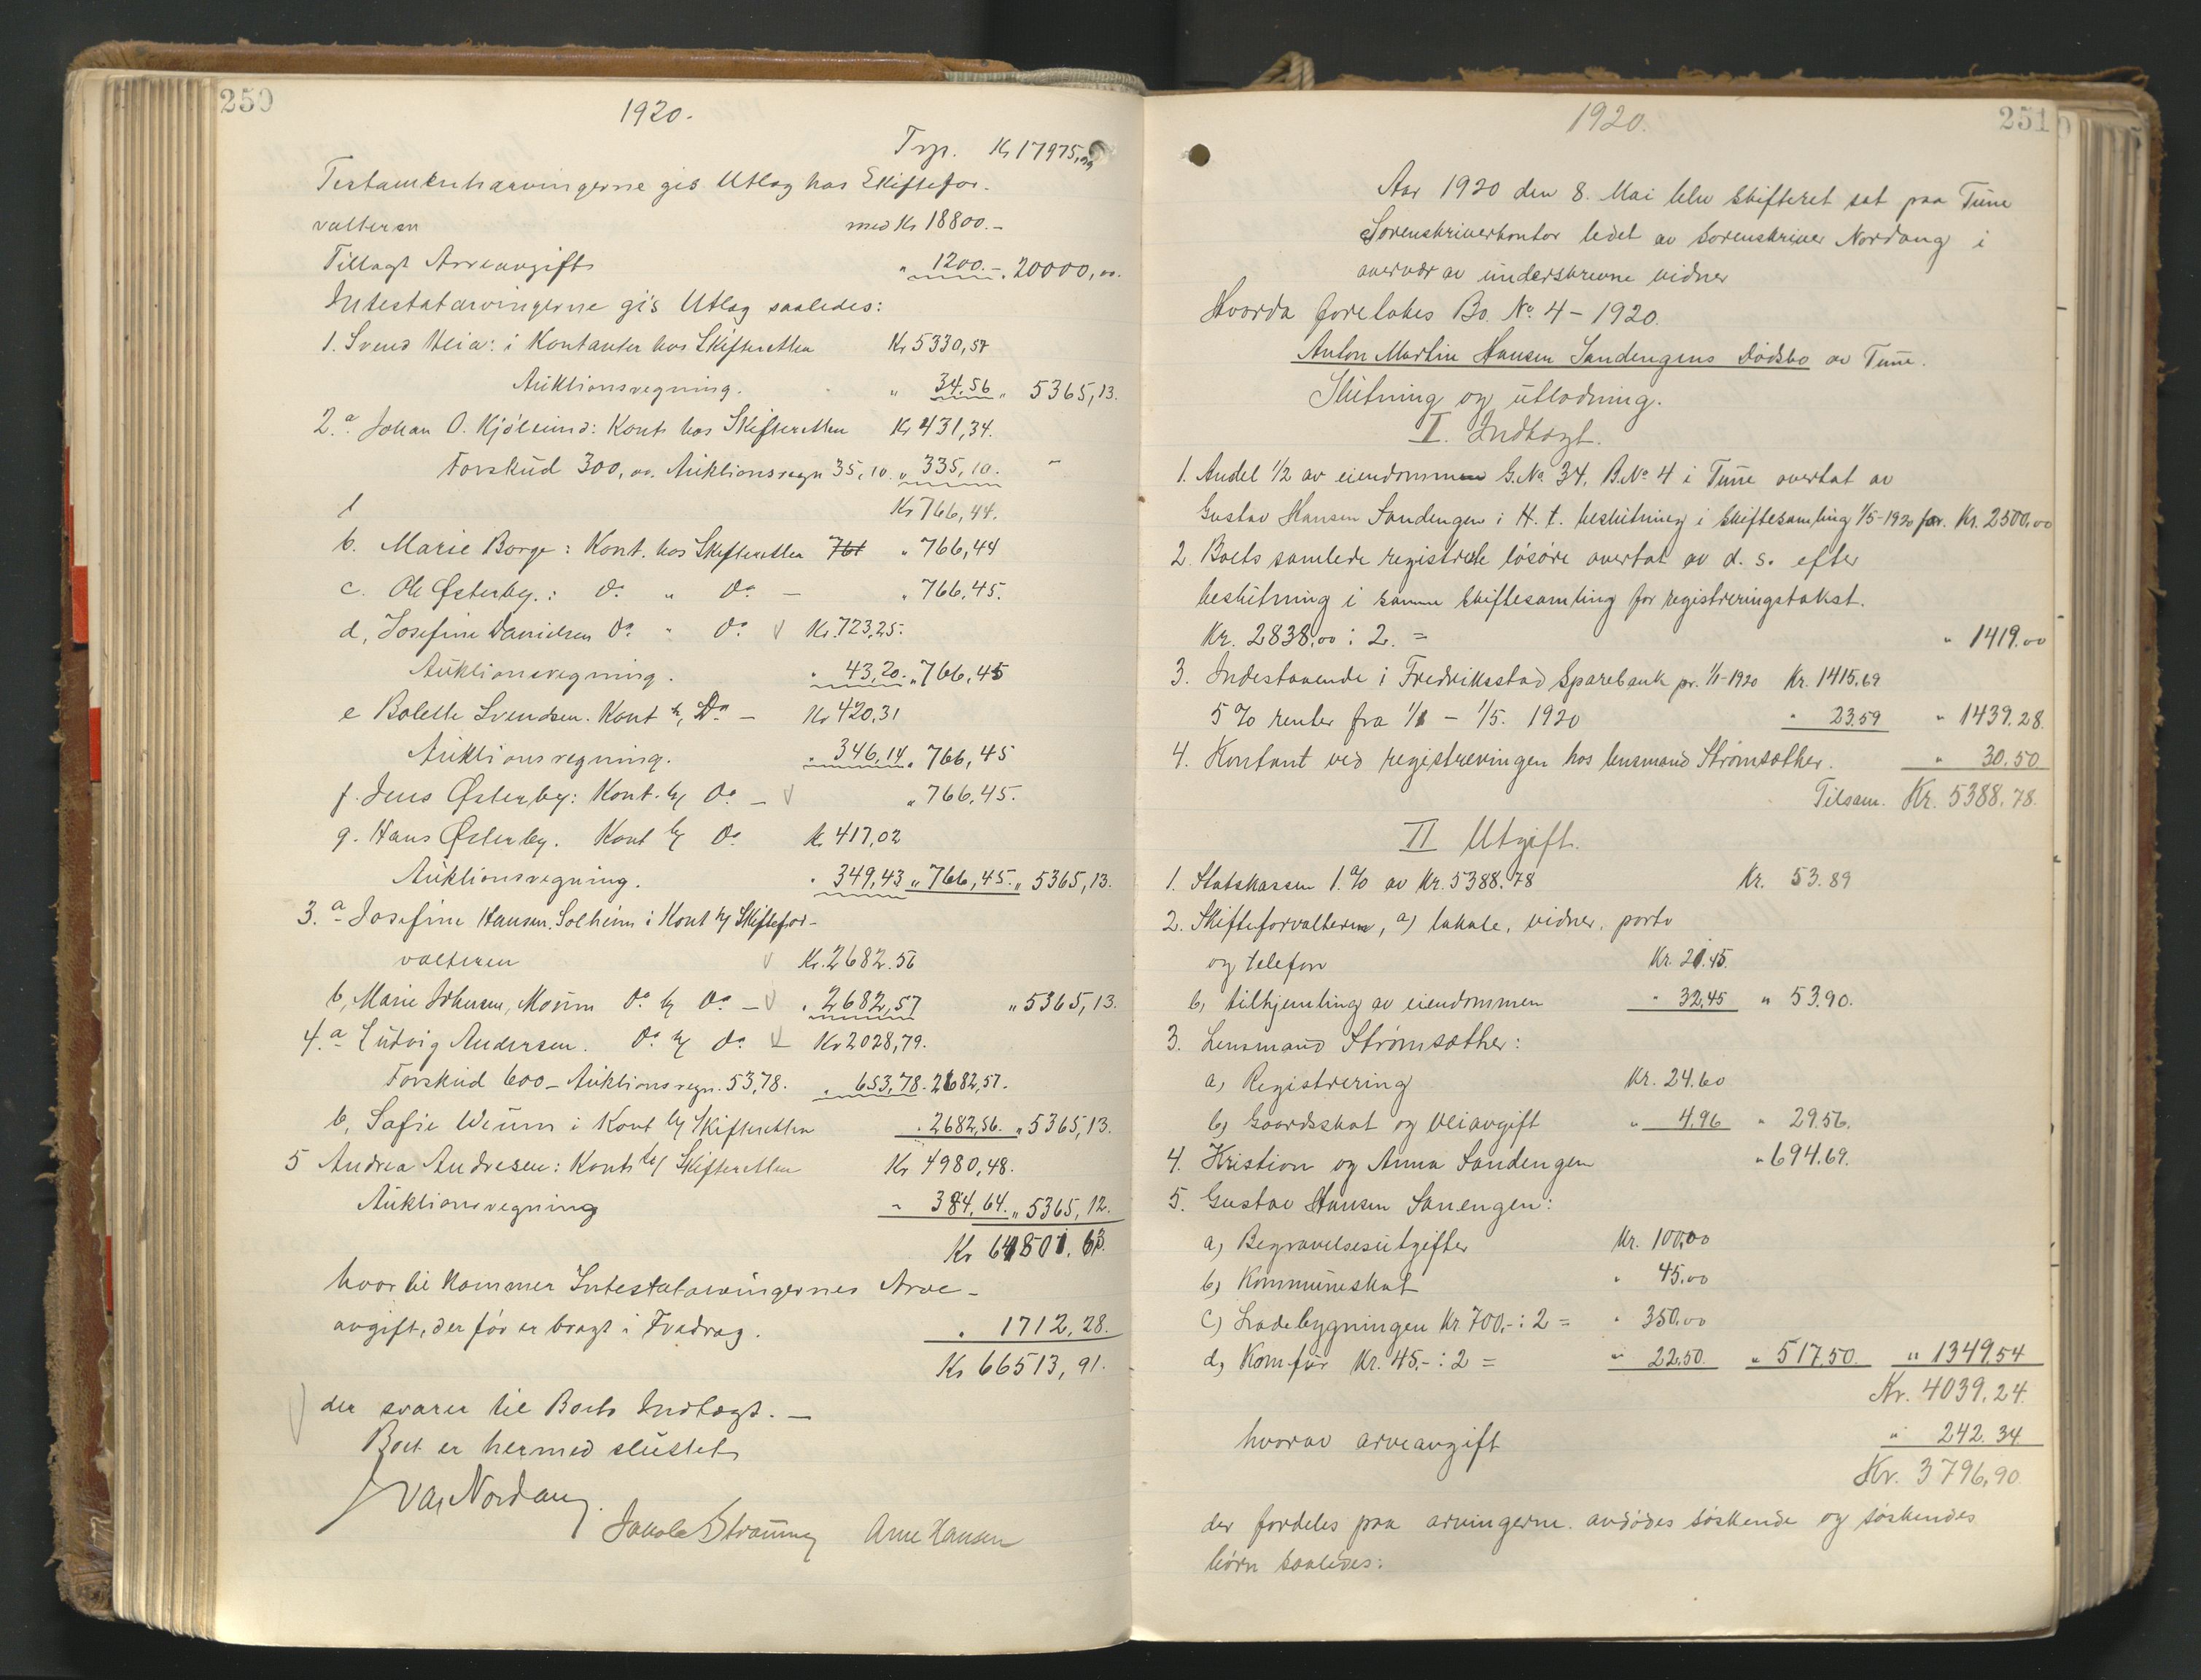 250
1920.
Trp. Kr 17975,99
Testamentsarvingerne gis Utlæg hos Skiftefor-
valteren med Kr 18800.-
Tillagt Arveavgift " 1200.- " 20000,00.
Intestatarvingerne gis Utlæg saaledes:
1. Svend Heia: i Kontanter hos Skifteretten Kr 5330,57
Auktionsregning. " 34.56 " 5365,13.
2.a Johan O. Kjølsund: Kont. hos Skifteretten Kr 431,34.
Forskud 300,00. Auktionsregn 35,10. " 335,10. -
Kr 766,44.
b. Marie Borge: Kont. hos Skifteretten 761 " 766,44
c. Ole Østerby.: Do " Do - " 766,45.
d, Josefine Danielsen Do " Do Kr. 723,25.
Auktionsregning. " 43,20. " 766,45
e Bolette Svendsen. Kont h, Do - Kr 420,31
Auktionsregning. " 346,14. " 766,45
f. Jens Østerby: Kont. h/ Do - " 766,45.
g. Hans Østerby. Kont h/ Do Kr 417,02
Auktionsregning. " 349,43 " 766,45. " 5365,13.
3.a Josefine Hansen, Solheim i Kont h/ Skiftefor-
valteren Kr. 2682.56
b, Marie Johansen, Moum Do h/ Do - " 2682,57 " 5365,13.
4.a Ludvig Andersen. Do h/ do - Kr 2028,79.
Forskud 600- Auktionsregn. 53,78. " 653,78. 2682,57.
b, Safie Weum i Kont h/ Skifteretten " 2682,56. " 5365,13.
5 Andrea Andresen: Kont. h/ Skifteretten Kr 4980,48.
Auktionsregning " 384,64. " 5365,12.
Kr 64801.63.
hvortil kommer Intestatarvingernes Arve-
avgift, der før er bragt i Fradrag. " 1712,28.
Kr 66513,91.
der svarer til Boets Indtægt. -
Boet er hermed sluttet
Ivar Nordang.
Jakob Straum Arne Hansen
251
1920.
Aar 1920 den 8. Mai blev skifteret sat paa Tune
Sorenskriverkontor ledet av sorenskriver Nordang i
overvær av underskrevne vidner
Hvorda foretokes Bo. No 4 - 1920.
Anton Martin Hansen Sandengens Dødsbo av Tune.
Slutning og utlodning.
I. Indtægt.
1. Andel 1/2 av eiendommen G.No 34, B.No 4 i Tune overtat av
Gustav Hansen Sandengen i H. t. beslutning i skiftesamling 1/5-1920 for. Kr. 2500,00
2. Boets samlede registrerte løsøre overtat av d. s. efter
beslutning i samme skiftesamling for registreringstakst.
Kr. 2838,00 : 2. = " 1419.00
3. Indestaaende i Fredriksstad Sparebank pr. 1/1-1920 Kr. 1415.69
5 % renter fra 1/1 - 1/5. 1920 " 23.59 " 1439.28.
4. Kontant ved registreringen hos lensmand Strømsæther. " 30.50
Tilsam. Kr. 5388,78.
II Utgift.
1. Statskassen 1.% av Kr. 5388.78 Kr. 53.89
2. Skifteforvalteren, a) lokale, vidner, porto
og telefon Kr. 21.45.
b, tilhjemling av eiendommen " 32,45 " 53.90.
3. Lensmand Strømsæther:
a, Registrering Kr. 24.60
b, Gaardsskat og veiavgift " 4,96 " 29.56.
4. Kristian og Anna Sandengen " 694.69.
5. Gustav Hansen Sanengen:
a, Begravelsesutgifter Kr. 100,00
b, Kommuneskat " 45.00
c) Ladebygningen Kr 700,- : 2 = " 350.00
d, Komfür Kr. 45,- : 2 = " 22.50. " 517.50. " 1349.54
Kr. 4039.24.
hvorav arveavgift " 242.34
Kr. 3796,90.
der fordeles paa arvingerne. avdødes søskende og søskendes
børn saaledes: